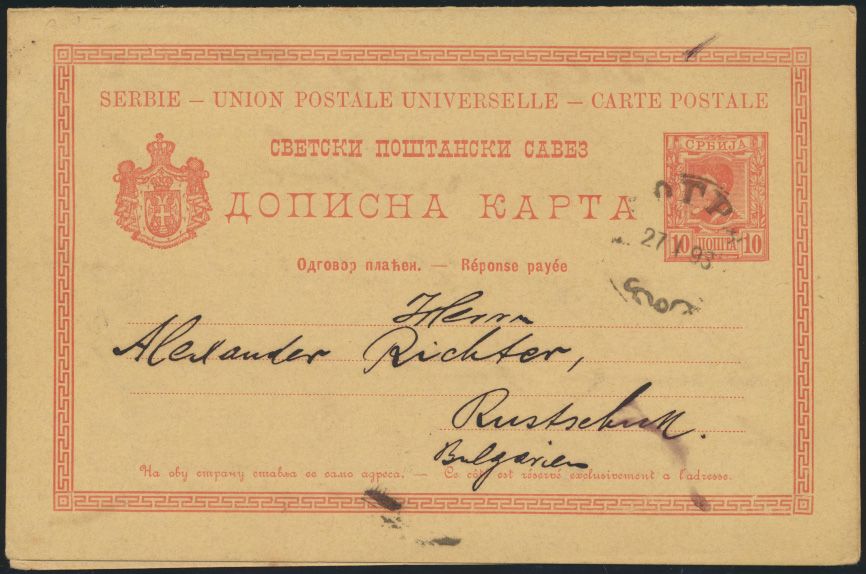 SERBIE — UNION POSTALE UNIVERSELLE — CARTE POSTALE
СВЕТСКИ ПОШТАНСКИ САВЕЗ
ДОПИСНА КАРТА
СРБИЈА
10 ПОШТА 10
27 93
Одговор плаћен. — Réponse payée
Herrn
Alexander Richter,
Rustschuk.
Bulgarien
На ову страну ставља се само адреса. — Ce côté est réservé exclusivement à l'adresse.